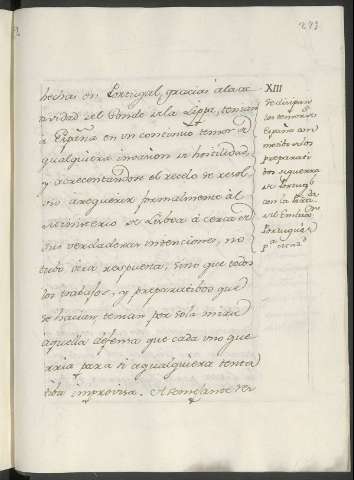 273
hechas en Portugal, gracias a la ac
tividad del Conde de la Lippa, tenian
a España en un continuo temor á
qualquiera invasion de hostilidad,
y acrecentandose el recelo de resol
vio a requerir formalmente àl
Ministerio de Lisboa á cerca de
sus verdaderas intenciones, no
tubo otra respuesta, sino que todos
los trabajos, y preparatibos que
se hacian, tenian por sola mira
aquella defensa que cada uno que
rria para si a qualquiera tenta
tiba improvisa. A
XIII
se disipan
los temores
España con
motibo los
preparati
bos de guerra
de Portugl
con la
del Embaxdor
Portugues